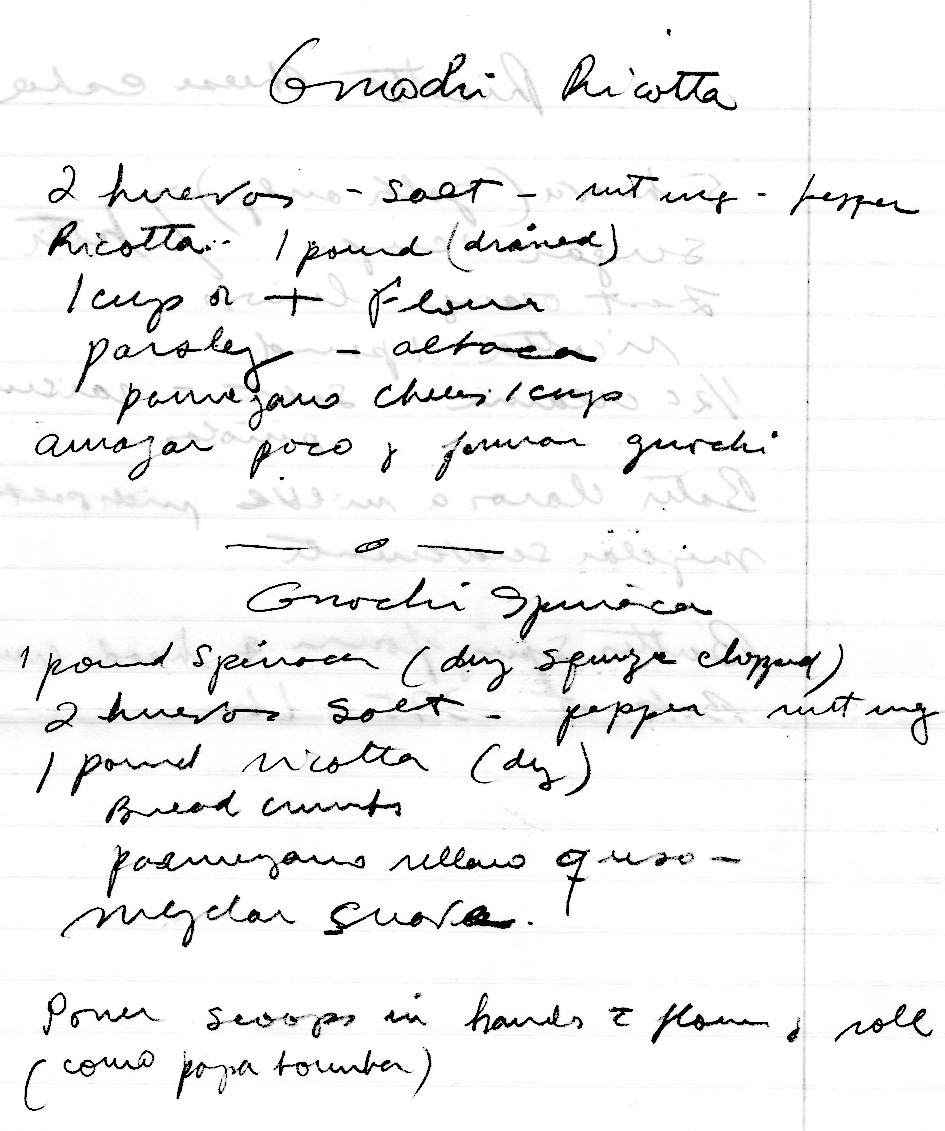 Gnochi Ricotta
2 huevos - salt - nutmeg - pepper
Ricotta.. 1 pound (drained)
1 cup or + Flour
parsley - albaca
parmezano chees 1 cup
amazar poco y formar gnochi
— o —
Gnochi Spinaca
1 pound Spinaca (dry squize chopped)
2 huevos Salt - pepper nutmeg
1 pound ricotta (dry)
Bread crumbs
parmezano queso -
mezclar suave.
Poner scoops in hands flour y roll
(como papa bomba)